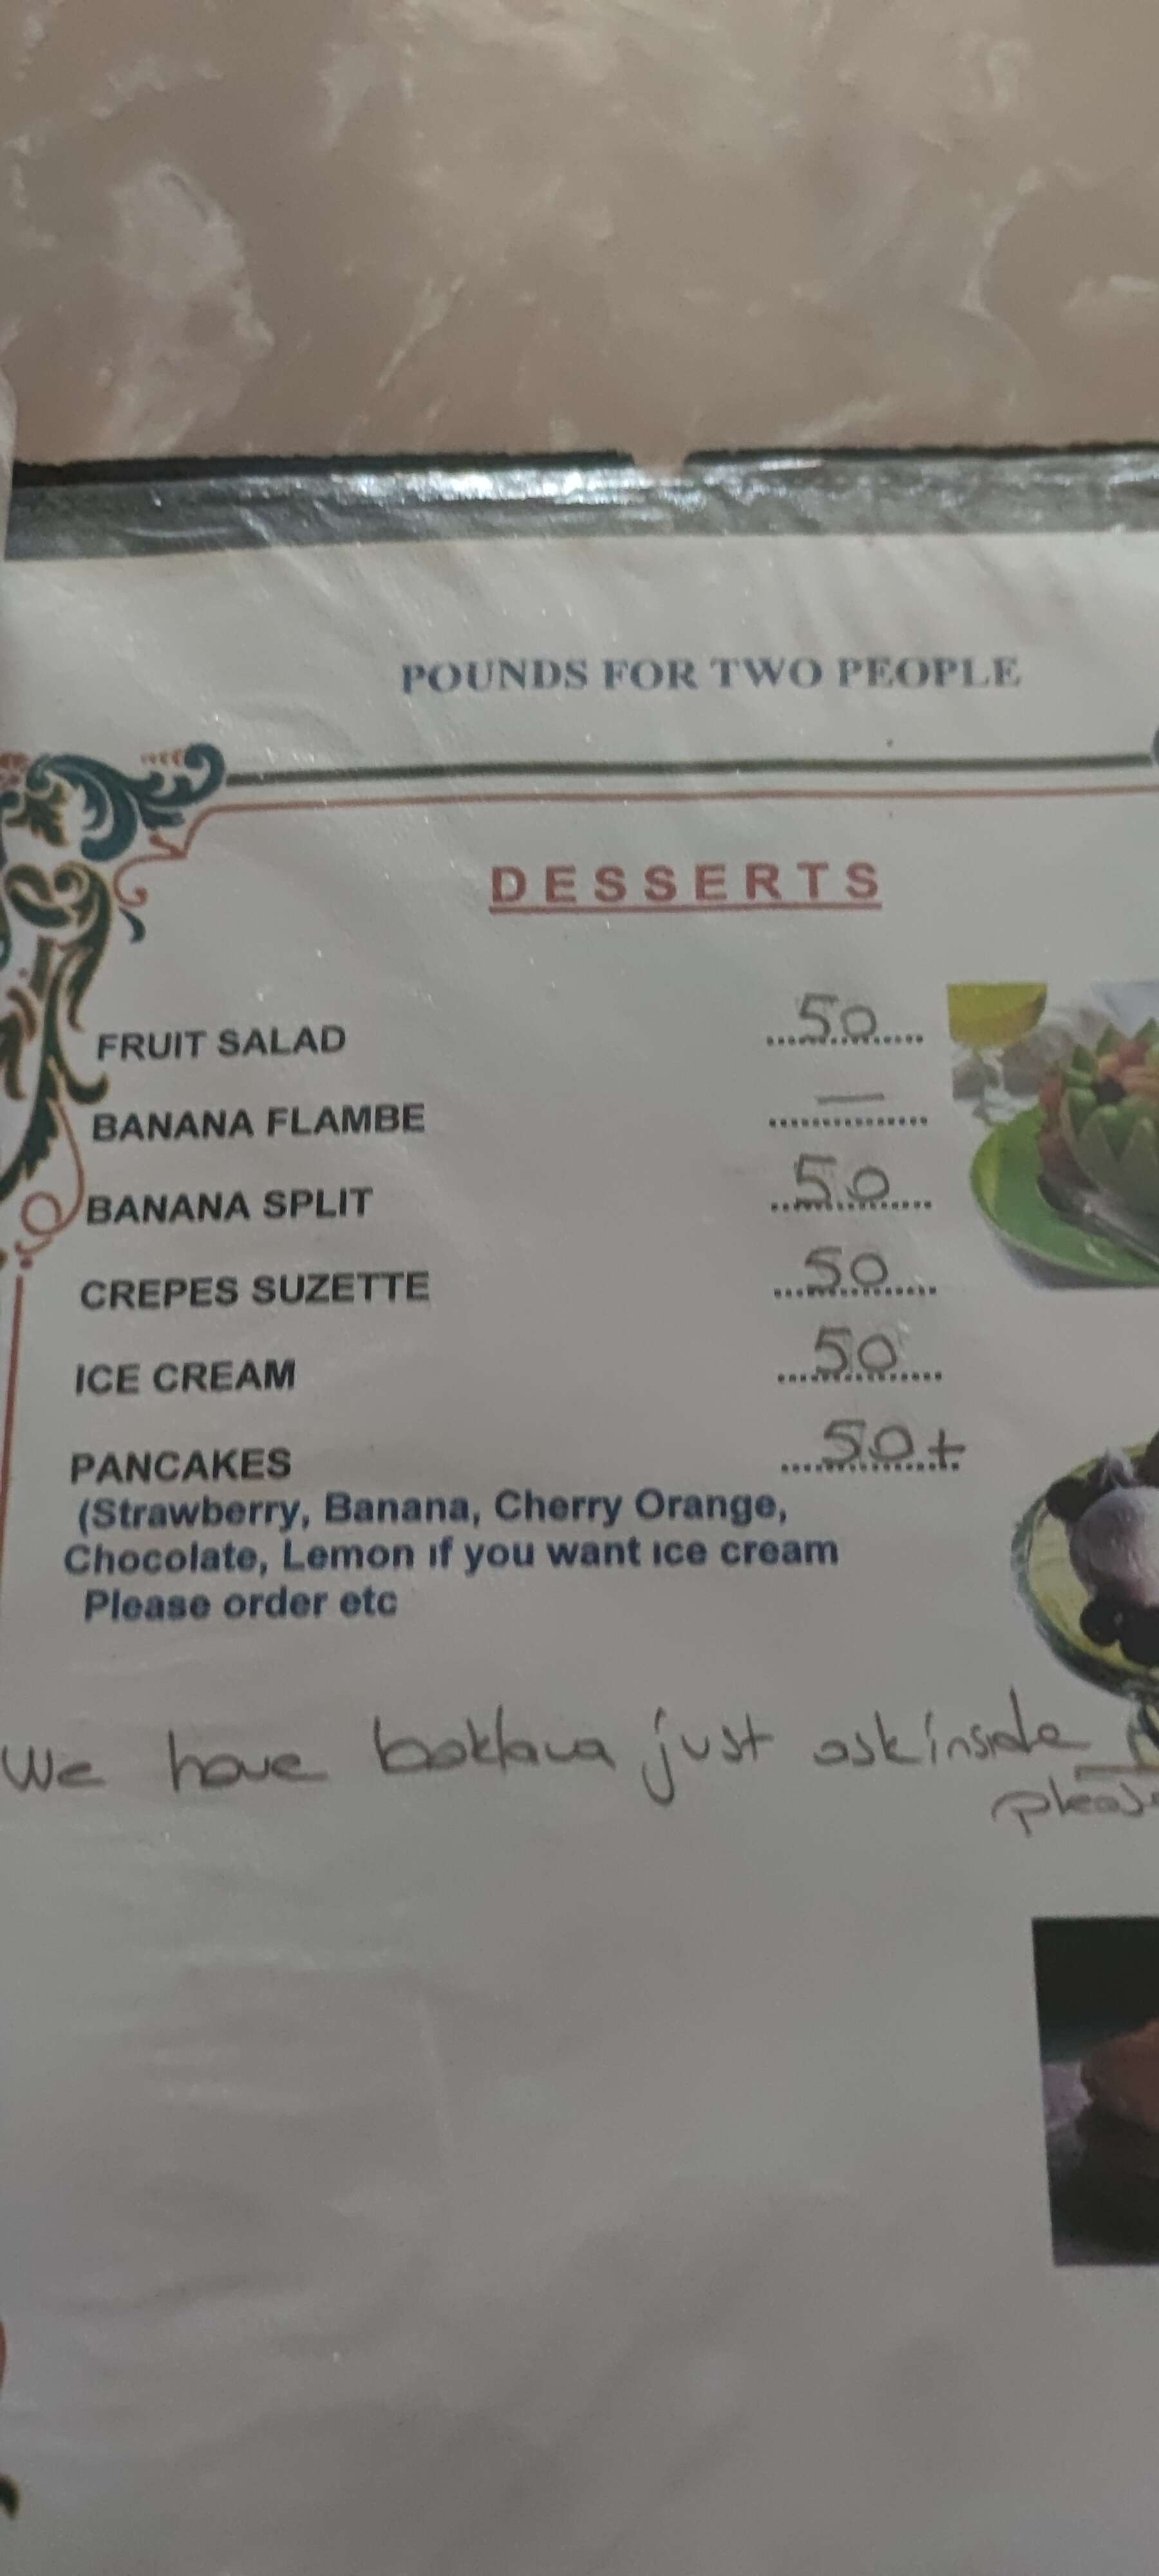 POUNDS FOR TWO PEOPLE
DESSERTS
FRUIT SALAD 50
BANANA FLAMBE —
BANANA SPLIT 50
CREPES SUZETTE 50
ICE CREAM 50
PANCAKES 50+
(Strawberry, Banana, Cherry Orange,
Chocolate, Lemon ıf you want ıce cream
Please order etc
We have baklava just ask inside
please